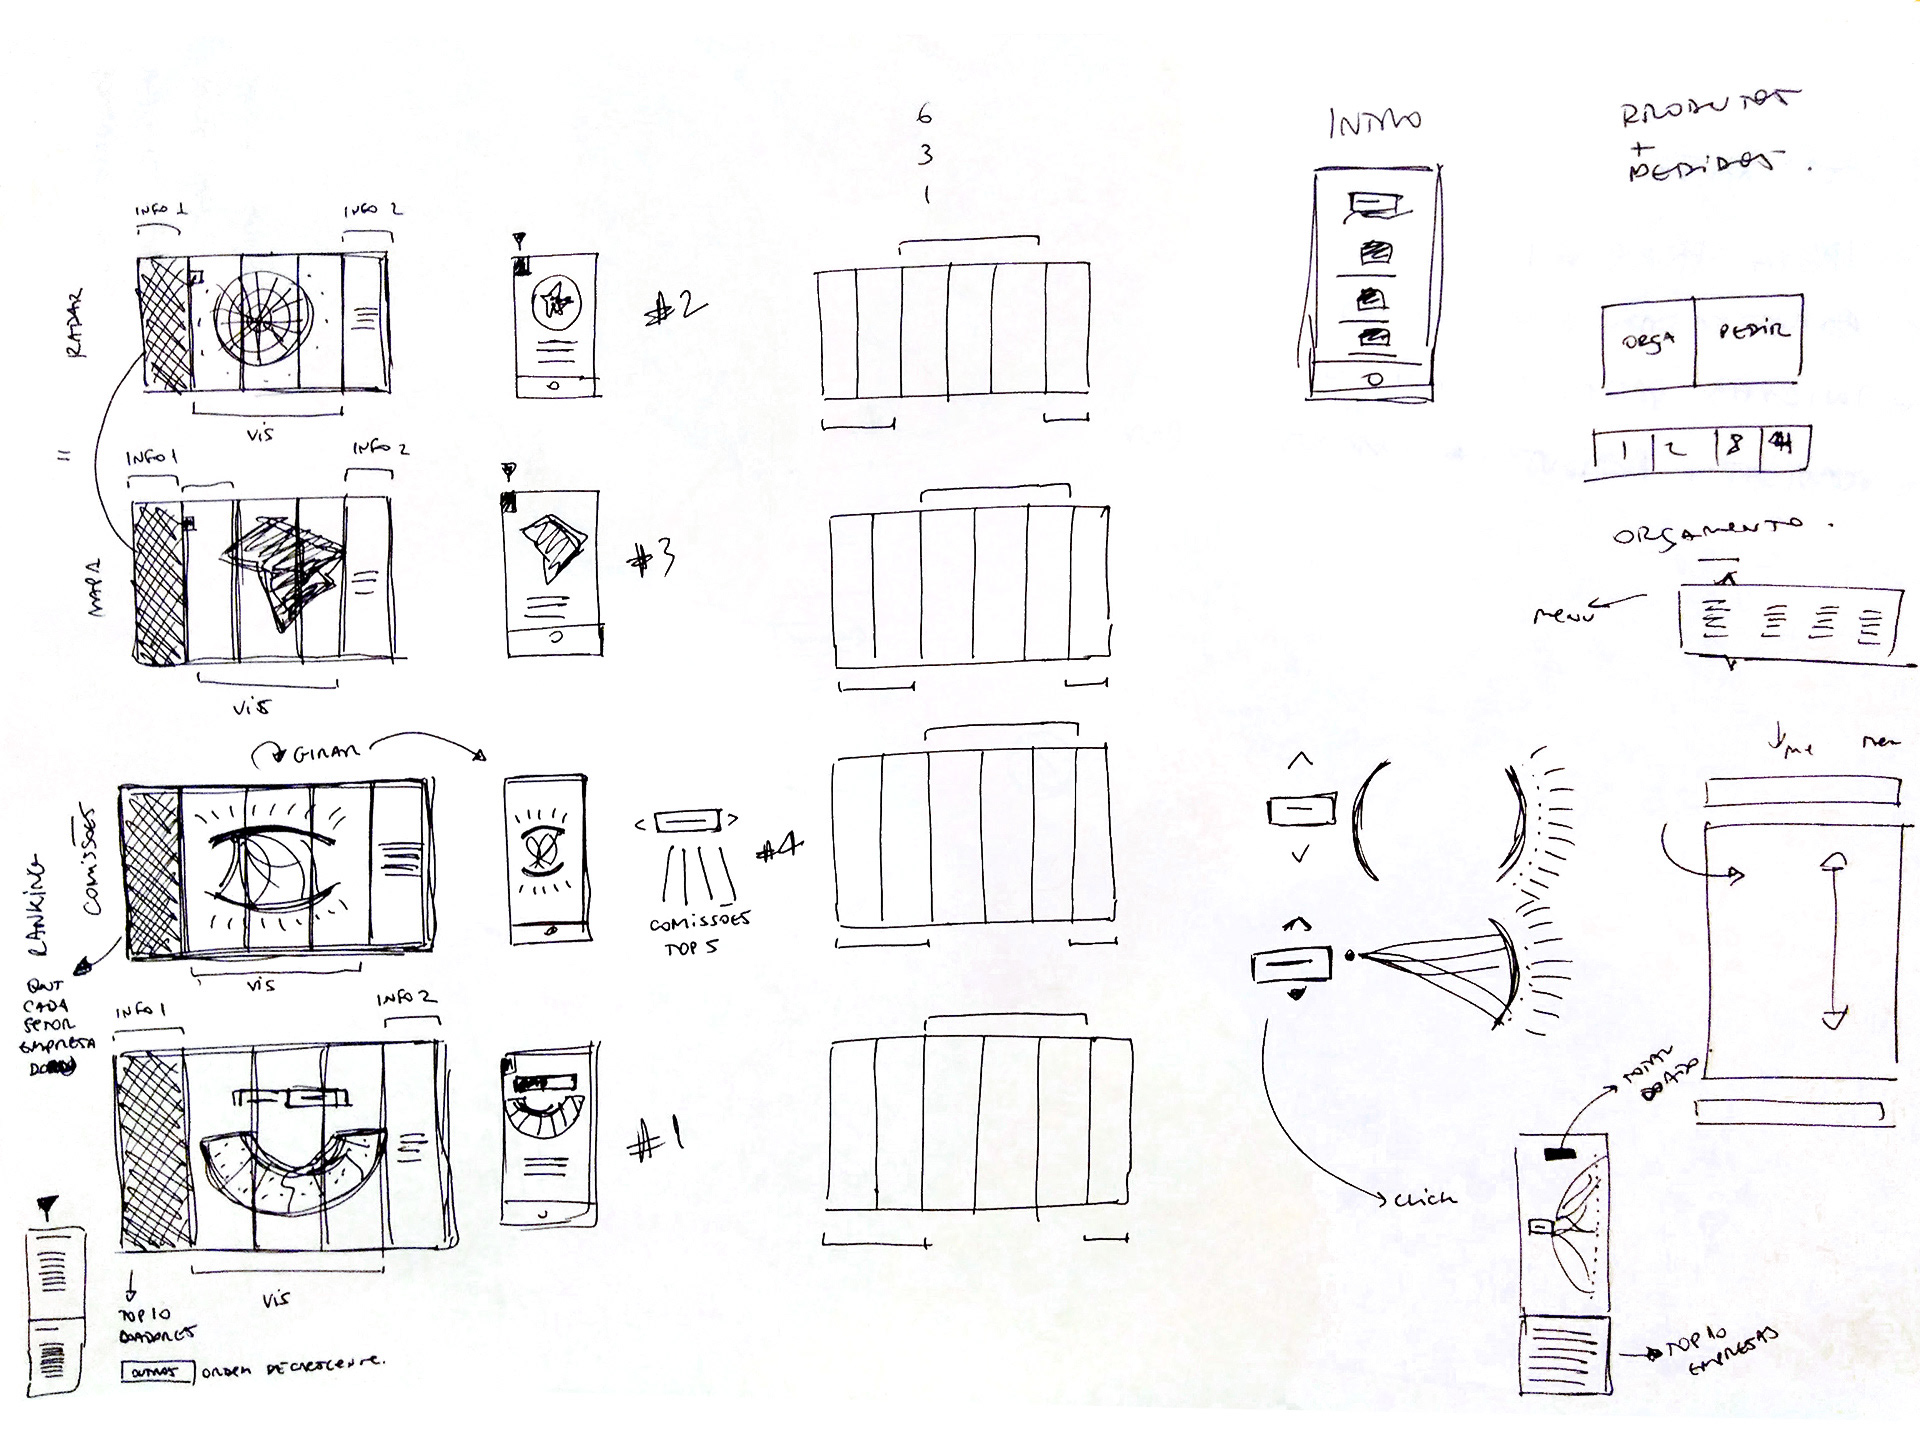 INFO 1
INFO 2
RADAR
VIS
#2
=
INFO 1
INFO 2
MAPA
VIS
#3
GIRAR
RANKING
COMISSÕES
VIS
< >
COMISSÕES
TOP 5
#4
CADA
SETOR
EMPRESA
INFO 1
INFO 2
VIS
#1
TOP 10
DOADORES
OUTROS
ORDEM DECRESCENTE.
6
3
1
INTRO
PRODUTOS
+
PEDIDOS.
ORÇA
PEDIR
1 2 8
ORÇAMENTO.
MENU
CLICK
TOTAL
DOADO
TOP 10
EMPRESAS